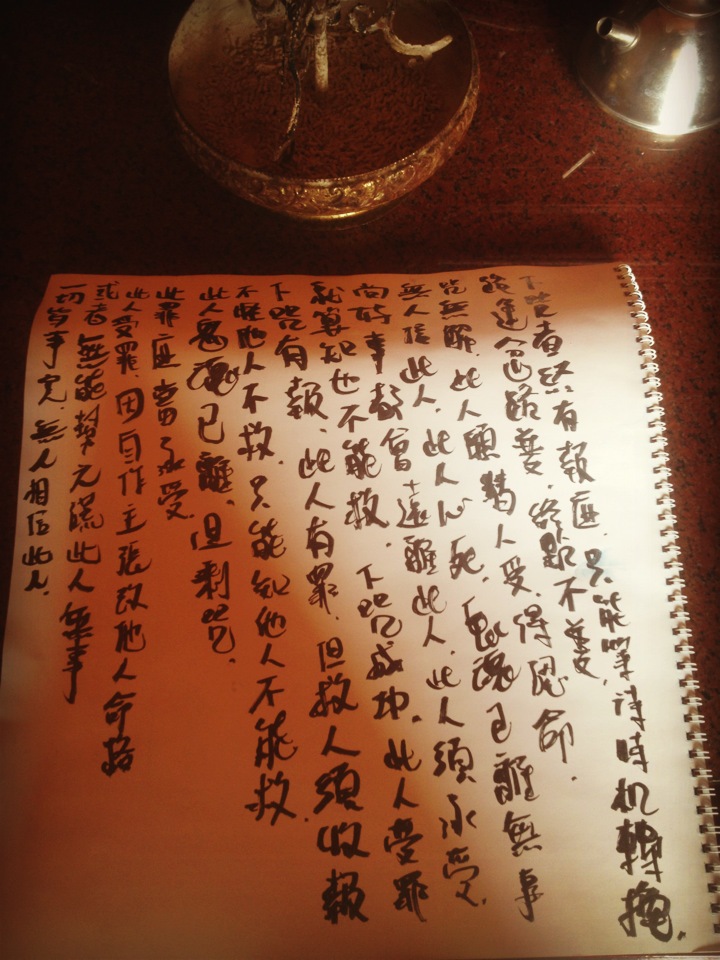 下咒者終有報應.只能等待時机轉換.
雖運命路善.終歸不善.
皆無罪.此人願替人受.得認命.
無人信此人.此人心死.鬼魂已離無事
向好事都會遠離此人.此人須承受.
就算知也不能救.下咒成功.此人受罪
下咒有報.此人有罪.但救人須收報
不怪他人不救.只能知他人不能救.
此人魂已離.但剩咒.
此罪應當承受
此人受罪.因自作主張改他人命格
或者無能幫 此人無事
一切等事完.無人相信此人.